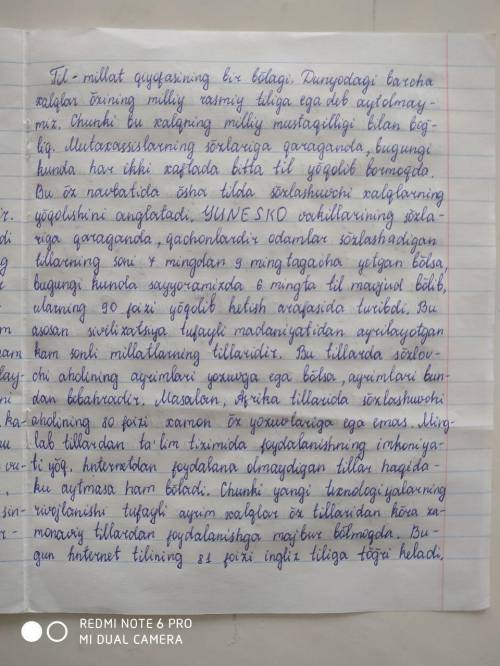 Til - millat qiyofasining bir bõlagi. Dunyodagi barcha
xalqlar õzining milliy rasmiy tiliga ega deb aytolmay-
miz. Chunki bu xalqning milliy mustaqilligi bilan bog-
liq. Mutaxassislarning sõzlariga qaraganda, bugungi
kunda har ikki xaftada bitta til yõqolib bormoqda.
Bu õz navbatida õsha tilda sõzlashuvchi xalqlarning
yõqolishini anglatadi. YUNESKO vakillarining sõzla-
riga qaraganda, qachonlardir odamlar sõzlashadigan
tillarning soni 7 mingdan 9 mingtagacha yetgan bõlsa,
bugungi kunda sayyoramizda 6 mingta til mavjud bõlib,
ularning 90 foizi yõqolib ketish arafasida turibdi. Bu
asosan sivilizatsya tufayli madaniyatidan ayrilayotgan
kam sonli millatlarning tillaridir. Bu tillarda sõzlov-
chi aholining ayrimlari yozuvga ega bõlsa, ayrimlari bun-
dan bebahradir. Masalan, Afrika tillarida sõzlashuvchi
aholining 80 foizi xamon õz yozuvlariga ega emas. Ming-
lab tillardan ta'lim tizimida foydalanishning imkoniya-
ti yõq. Internetdan foydalana olmaydigan tillar haqida-
ku aytmasa ham bõladi. Chunki yangi texnologiyalarning
rivojlanishi tufayli ayrim xalqlar õz tillaridan kõra za-
monaviy tillardan foydalanishga majbur bõlmoqda. Bu-
gun Internet tilining 81 foizi ingliz tiliga tõğri keladi.
REDMI NOTE 6 PRO
MI DUAL CAMERA